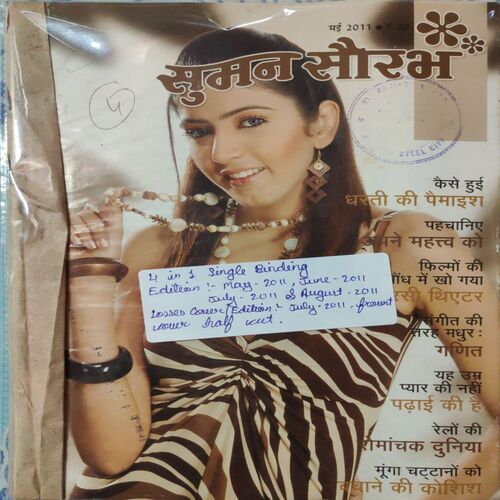 मई 2011 • ₹ 20
सुमन सौरभ
4
STEEL CITY
कैसे हुई
धरती की पैमाइश
पहचानिए
अपने महत्त्व को
फिल्मों की
चकाचौंध में खो गया
पारसी थिएटर
संगीत की
तरह मधुर :
गणित
यह उम्र
प्यार की नहीं
पढ़ाई की है
रेलों की
रोमांचक दुनिया
मूंगा चट्टानों को
बचाने की कोशिश
4 in 1 Single Binding
Edition :- May - 2011, June - 2011
July - 2011 & August - 2011
Losses Cover/Edition :- July - 2011 - front
cover half cut.